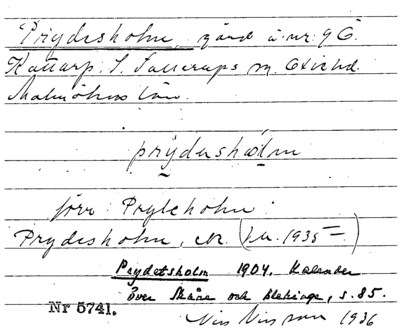 Prydesholm, gård å nr 9 Ö.
Kattarp. S. Sallerups sn. Oxie hd.
Malmöhus län.
prýdeshòlm
förr: Pryleholm.
Prydesholm, (JU. 1935 –)
Prydetsholm 1904. Kalender
över Skåne och Blekinge, s. 85.
Nr 5741.
Nils Nilsson 1936